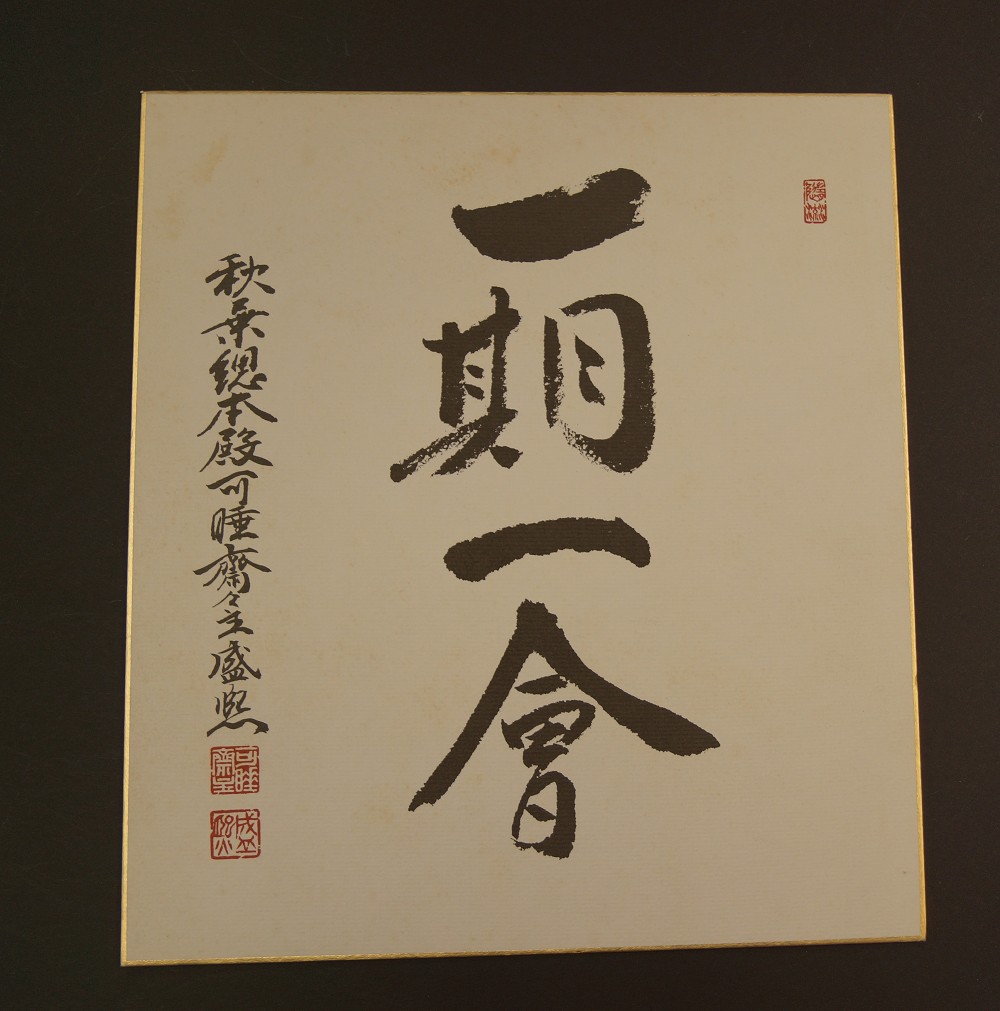 一期一會
秋葉總本殿可睡齋々主盛熈
可睡齋主
盛熈